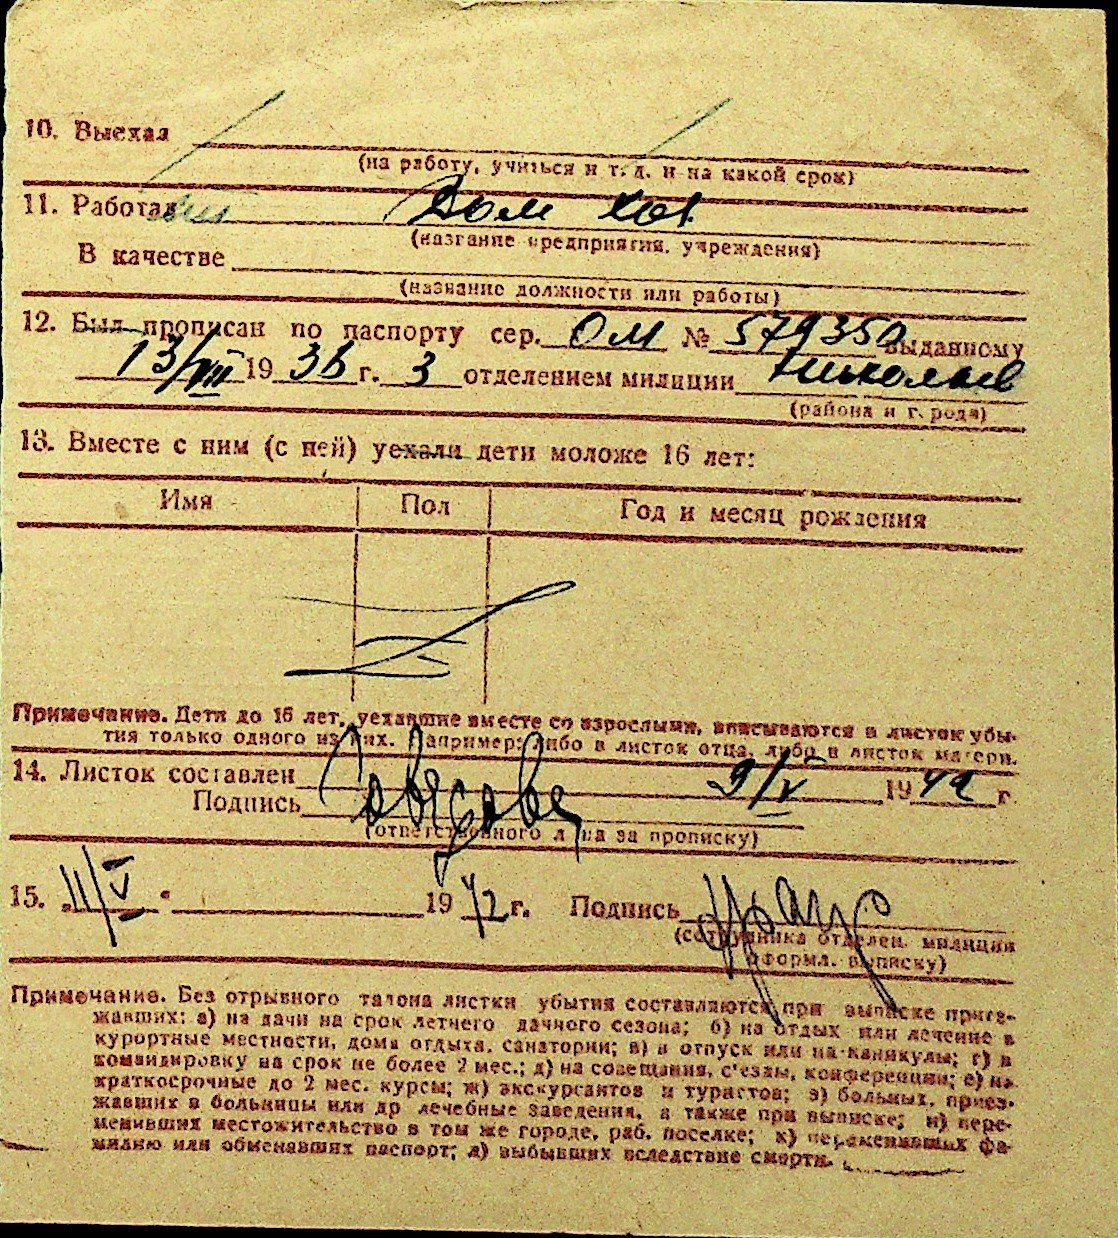 10. Выехал
(на работу, учиться и т. д. и на какой срок)
11. Работал Дом хоз.
(название предприятия, учреждения)
В качестве
(название должности или работы)
12. Был прописан по паспорту сер. ОМ № 579350 выданному
13/VIII 1936 г. 3 отделением милиции Николаев
(района и города)
13. Вместе с ним (с ней) уехали дети моложе 16 лет:
Имя Пол Год и месяц рождения
Примечание. Дети до 16 лет, уехавшие вместе со взрослыми, вписываются в листок убы-
тия только одного из них. Например: либо в листок отца, либо в листок матери.
14. Листок составлен 9/V 1942 г.
Подпись
(ответственного лица за прописку)
15. 11/V 1942 г. Подпись
(сотрудника отделен. милиции
оформл. выписку)
Примечание. Без отрывного талона листки убытия составляются при выписке приез-
жавших: а) на дачи на срок летнего дачного сезона; б) на отдых или лечение в
курортные местности, дома отдыха, санатории; в) в отпуск или на каникулы; г) в
командировку на срок не более 2 мес.; д) на совещания, с'езды, конференции; е) на
краткосрочные до 2 мес. курсы; ж) экскурсантов и туристов; з) больных, приез-
жавших в больницы или др лечебные заведения, а также при выписке; и) пере-
менивших местожительство в том же городе, раб. поселке; к) переменивших фа-
милию или обменявших паспорт; л) выбывших вследствие смерти.